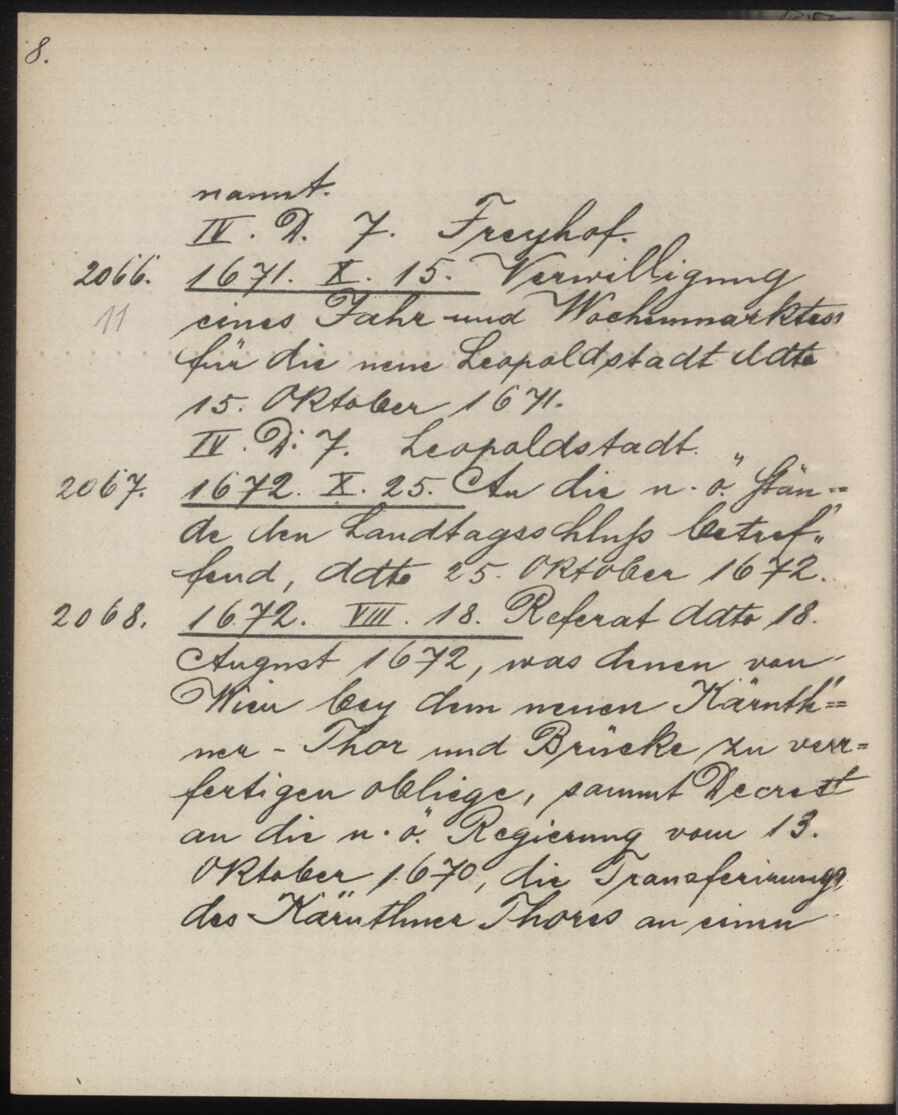 8.
nannt.
IV. D. 7. Freyhof.
2066. 1671. X. 15. Verwilligung
11 eines Jahr und Wochenmarktes
für die neue Leopoldstadt ddto
15. Oktober 1671.
IV. D. 7. Leopoldstadt.
2067. 1672. X. 25. An die n. ö. Stän=
de den Landtagsschluß betref„
fend, ddto 25. Oktober 1672.
2068. 1672. VIII. 18. Referat ddto 18.
August 1672, was denen von
Wien bey dem neuen Kärnth=
ner-Thor und Brücke zu verr=
fertigen obliege, sammt Decret
an die n. ö. Regierung vom 13.
Oktober 1670, die Transferirung
des Kärnthner Thores an einen